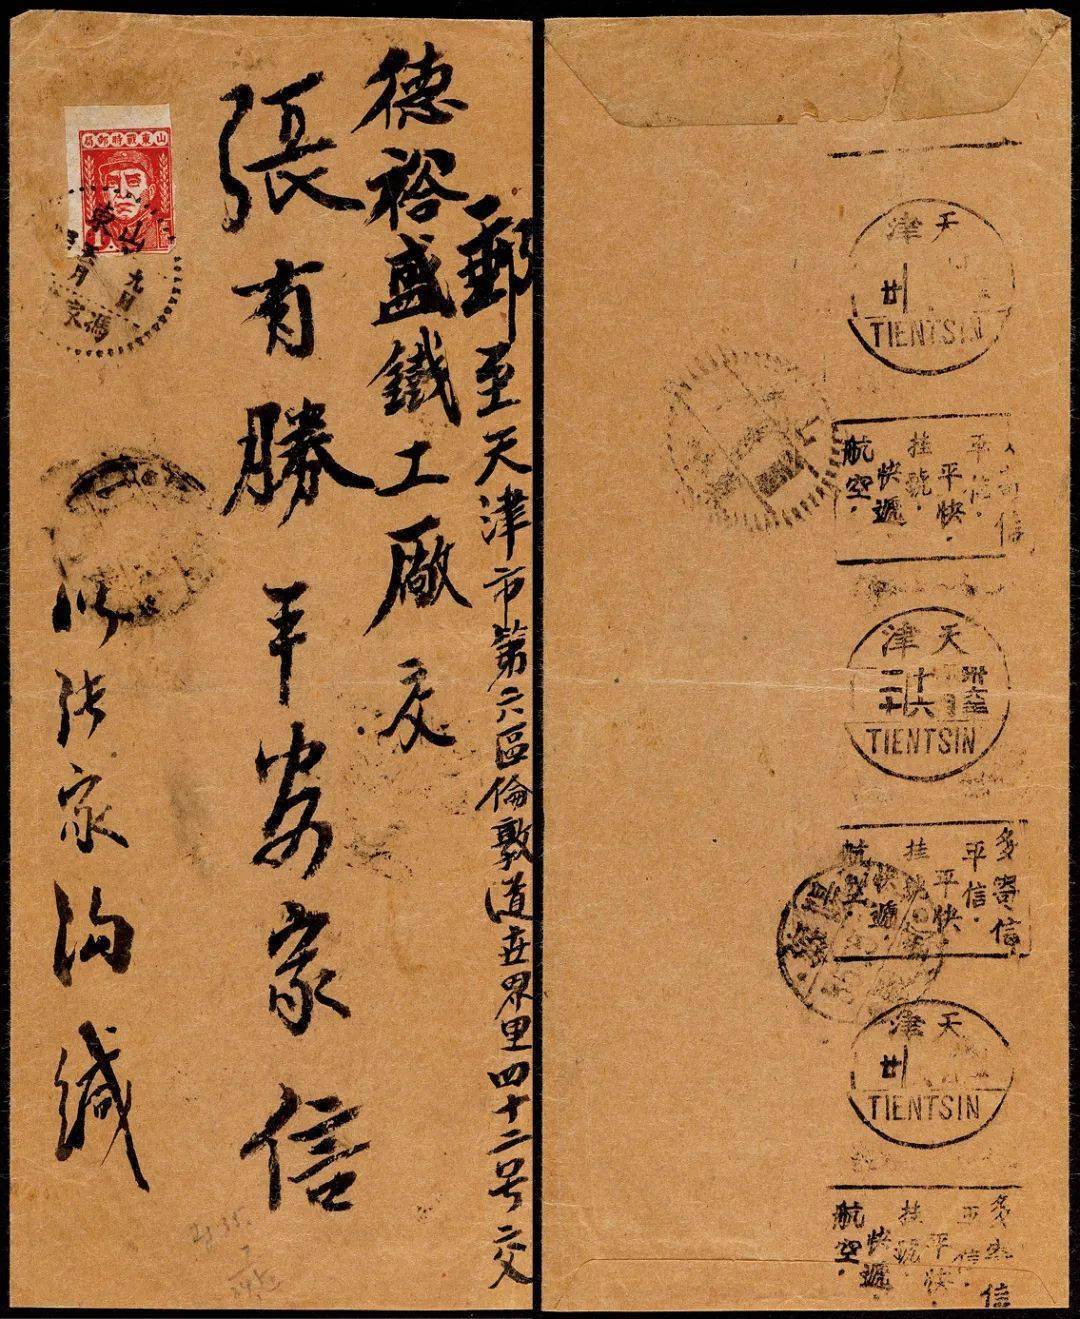 郵至天津市第六區倫敦道世界里四十二号交
德裕盛鐵工厰交
張有勝平安家信
張家溝緘
山東戰時郵局
山東
九日
馮家
天津
廿
TIENTSIN
平信.
挂號.平快.
航空.快遞
信
天津
TIENTSIN
多寄信
平信.
挂號平快
航空.快遞
天津
廿
TIENTSIN
多寄信
平信
挂號.平快.
航空.快遞